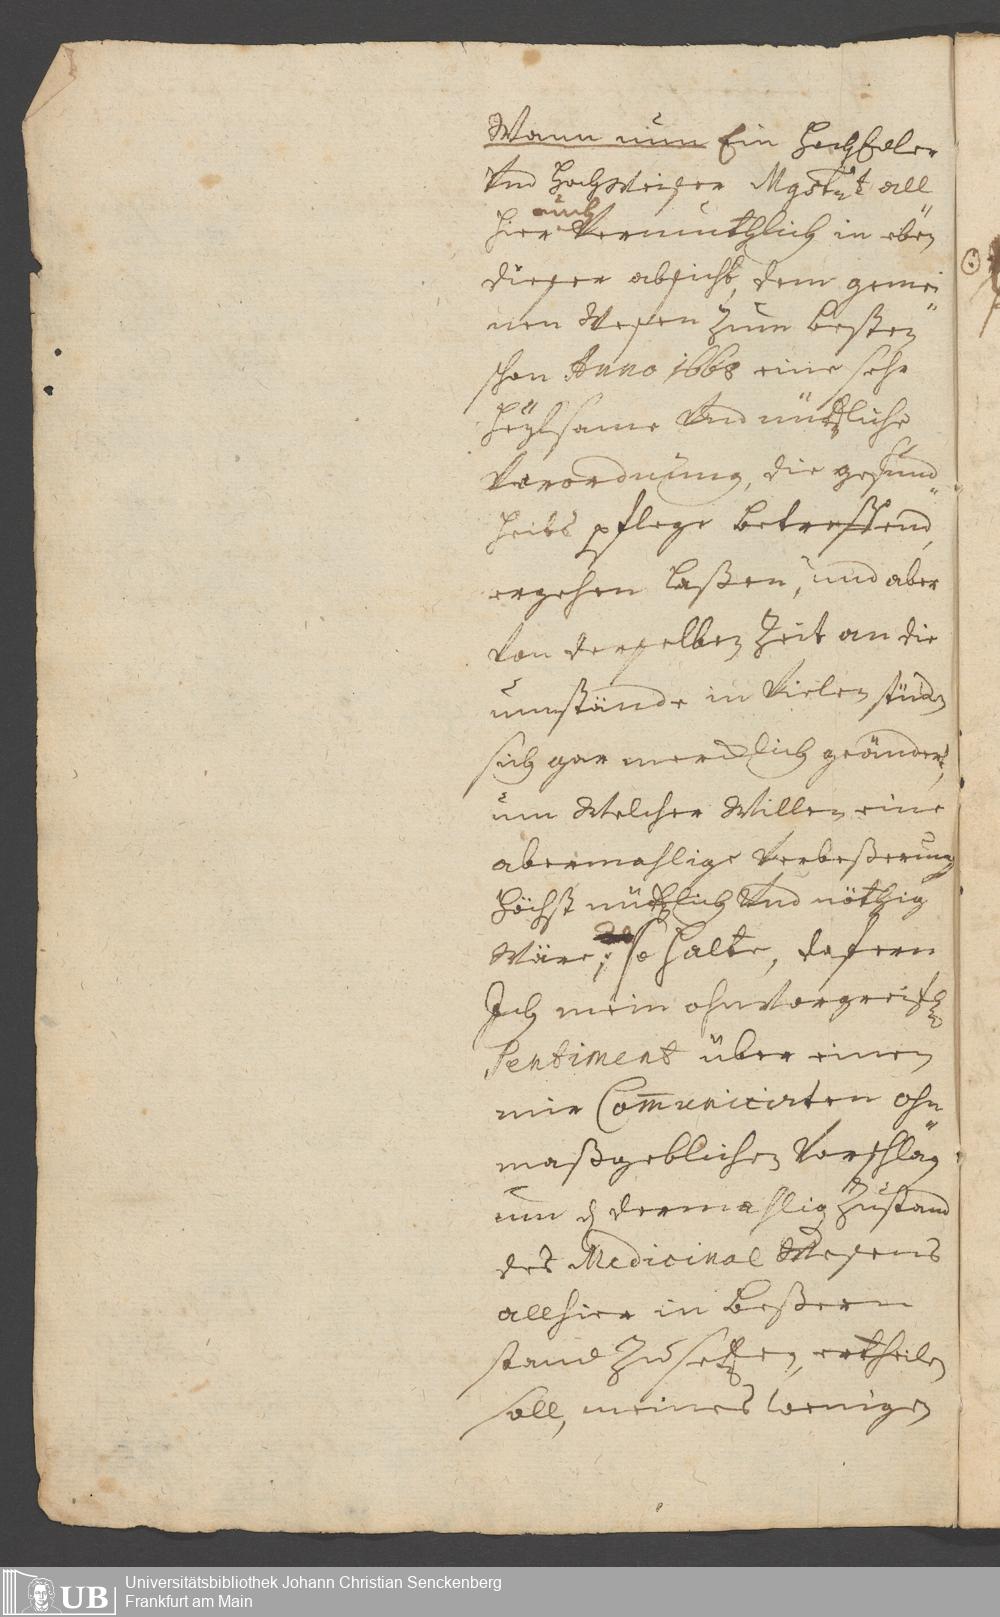 Wann nun Ein HochEdler
Und Hochweißer Mgstrt all
auch
hier Vermuthlich in eben
dießer absicht, dem gemei
nen Weßen zum besten
schon Anno 1668 eine sehr
heylsame Und nützliche
Verordnung, die gesund
heits pflege betreffend,
ergehen laßen, und aber
Von derselben Zeit an die
umstände in Vielen stücken
sich gar mercklich geändert,
um Welcher Willen eine
abermahlige Verbeßerung
höchst nützlich Und nöthig
Wäre; so halte, dafern
Ich mein ohnvorgreifl
Sentiment über einen
mir Communicirten ohn
maßgeblichen Vorschlag
um d dermahlig Zustand
des Medicinal Wesens
allhier in beßern
stand zu setzen, ertheilen
soll, meines wenigen
Universitätsbibliothek Johann Christian Senckenberg
Frankfurt am Main
UB